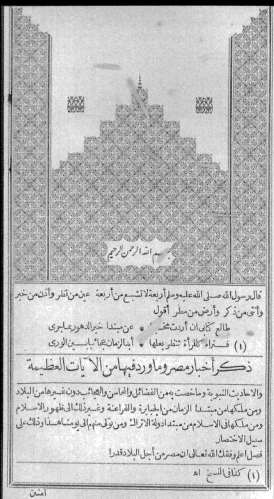 بسم الله الرحمن الرحيم
قال رسول الله صلى الله عليه وسلم أربعة لا تشبع من أربعة عين من نظر وأذن من خبر
وأنثى من ذكر وأرض من مطر أقول
طالع كتابى ان أردت مخبرا * عن مبتدا خبر الدهور بما جرى
(١) فتراه كالمرآة تنظر بعلها * أبدا لزمان بما يبين الورى
ذكر أخبار مصر وما ورد فيها من الآيات العظيمة
والاحاديث النبوية وما خصت به من الفضائل والمحاسن والعجائب دون غيرها من البلاد
ومن ملكها من مبتدا الزمان من الجبابرة والفراعنة وغير ذلك الى ظهور الاسلام
ومن ملكها فى الاسلام من مبتدا دولة الاتراك ومن تولى منهم الى يومنا هذا وذلك على
سبيل الاختصار
فصل اعلم وفقك الله تعالى ان مصر من أجل البلاد قدرا
(١) كذا فى النسخ اه